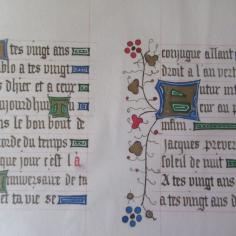 tes vingt ans
abo a tes vingt
Dhier et a ceux
aujourdhui
ans le bon bout de
onde du temps
que jour c'est l'a
nniversaire de ta
et ta vie se
conjugue allant
droit a l'an vert
utur int
eur au p
infini
Jacques Prever
soleil de nuit
A tes vingt ans
a tes vingt ans d